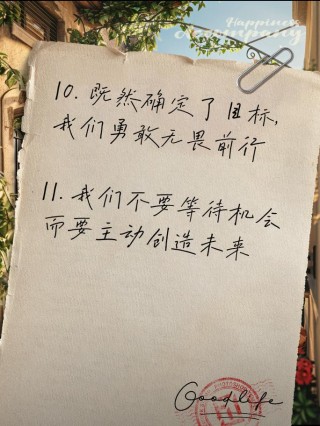 Happiness
Accompany
10. 既然确定了目标,
我们勇敢无畏前行
11. 我们不要等待机会
而要主动创造未来
Goodlife